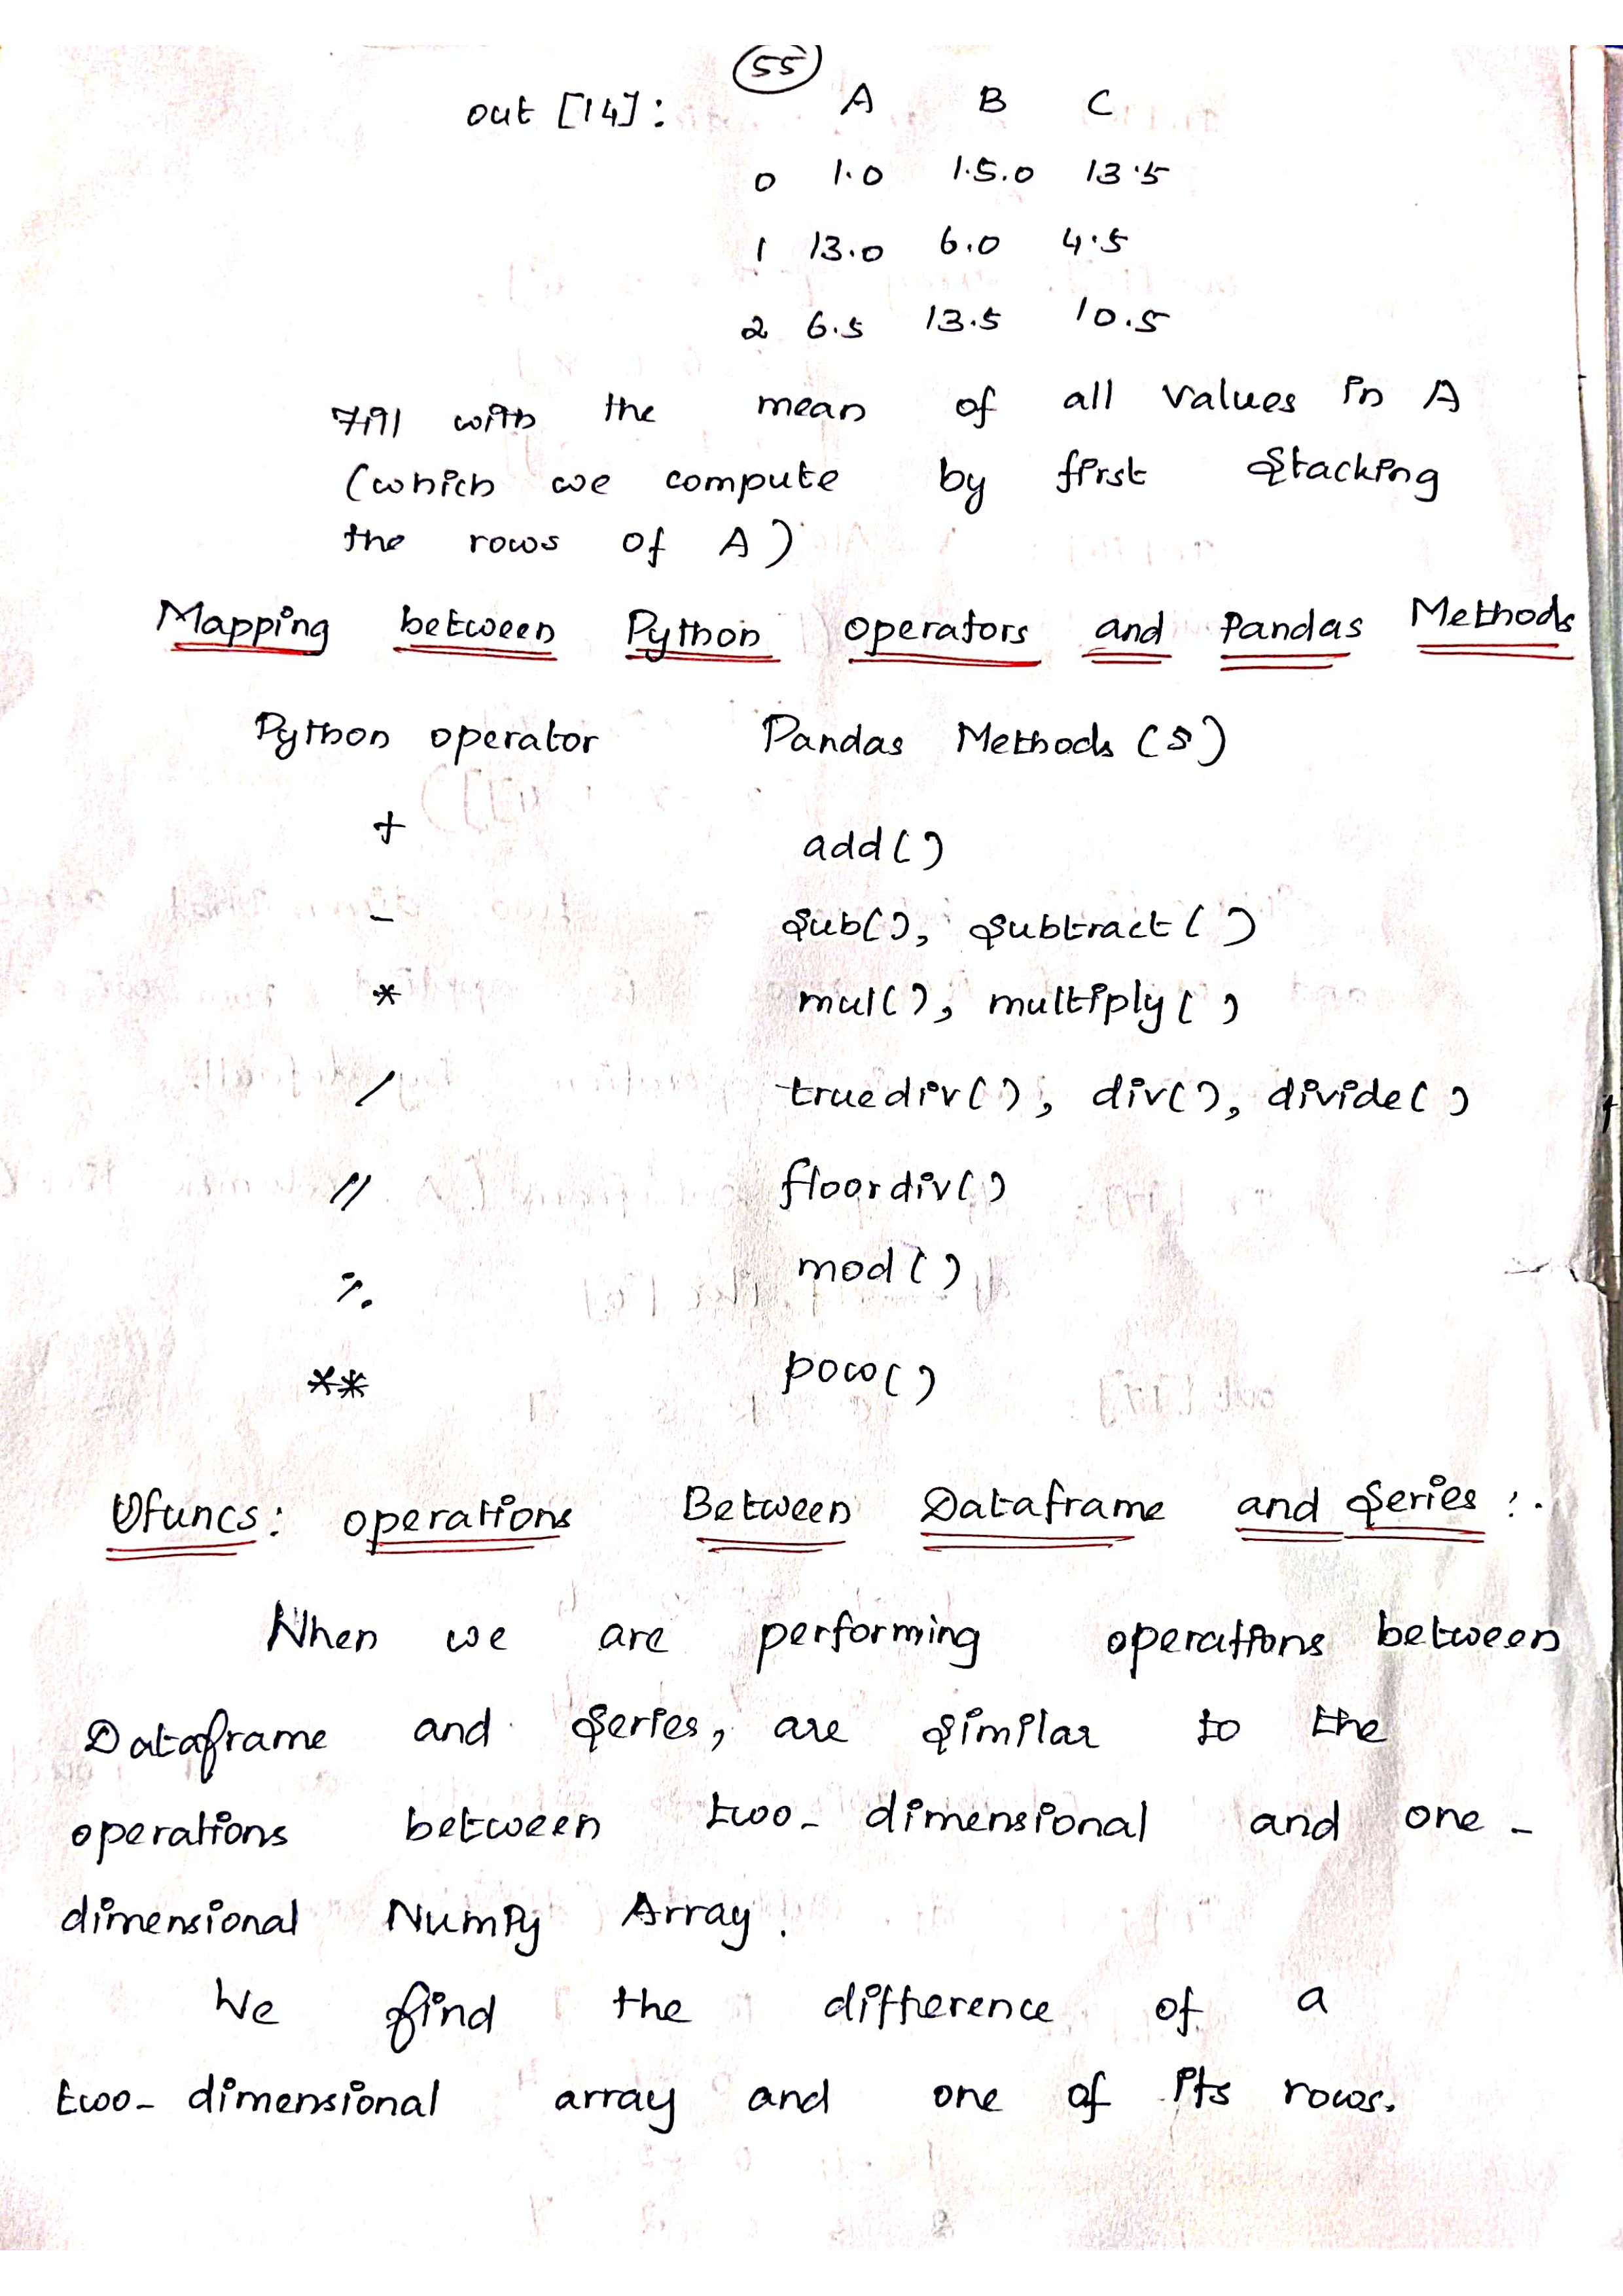 55
out [14]: A B C
0 1.0 1.5.0 13.5
1 13.0 6.0 4.5
2 6.5 13.5 10.5
Fill with the mean of all values in A
(which we compute by first stacking
the rows of A)
Mapping between Python operators and Pandas Methods
Python operator Pandas Methods (s)
+ add()
- sub(), subtract()
* mul(), multiply()
/ truediv(), div(), divide()
// floordiv()
% mod()
** pow()
Ufuncs: operations Between Dataframe and Series :.
When we are performing operations between
Dataframe and Series, are similar to the
operations between two-dimensional and one-
dimensional NumPy Array.
We find the difference of a
two-dimensional array and one of its rows.